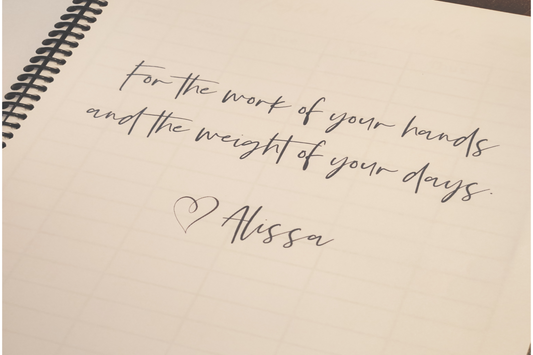 For the work of your hands
and the weight of your days.
♡ Alissa